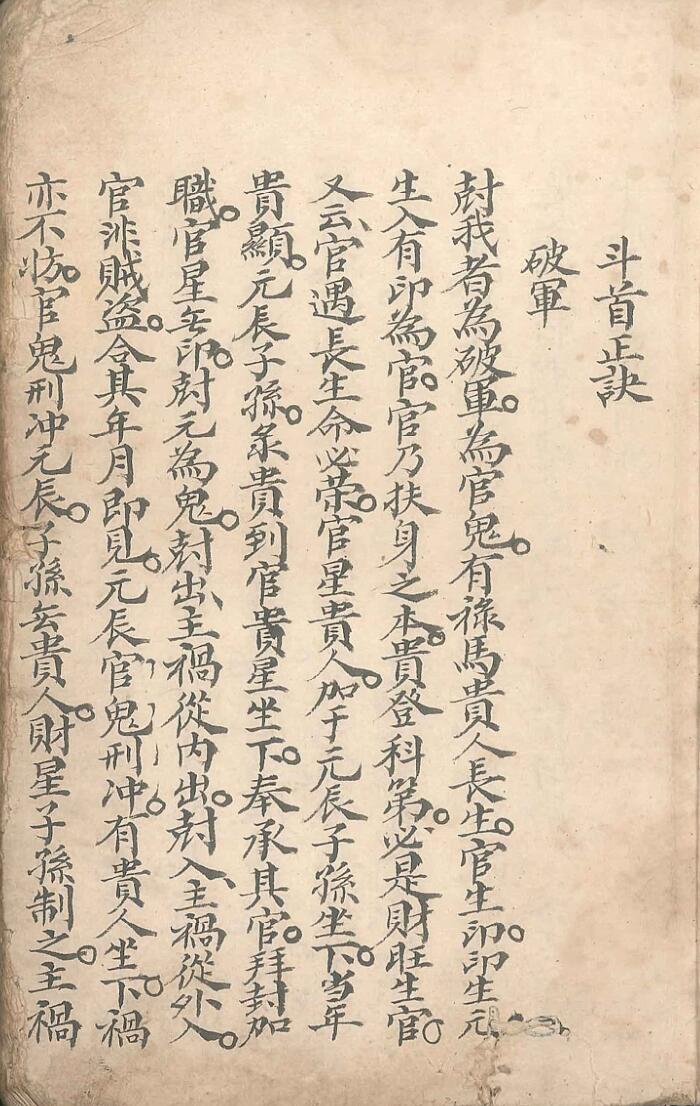 斗首正訣
破軍
尅我者為破軍。為官鬼。有祿馬貴人長生。官生印。印生元
生入有印為官。官乃扶身之本。貴登科第。必是財旺生官。
又云、官遇長生命必荣。官星貴人。加于元辰子孫坐下。当年
貴顯。元辰子孫。系貴到官貴星坐下。奉承其官。拜封加
職。官星无印。尅元為鬼。尅出、主禍從内出。尅入、主禍從外入。
官涉賊盗。合其年月即見。元辰官鬼刑冲。有貴人坐下。禍
亦不妨。官鬼刑冲元辰。子孫无貴人。財星子孫制之。主禍